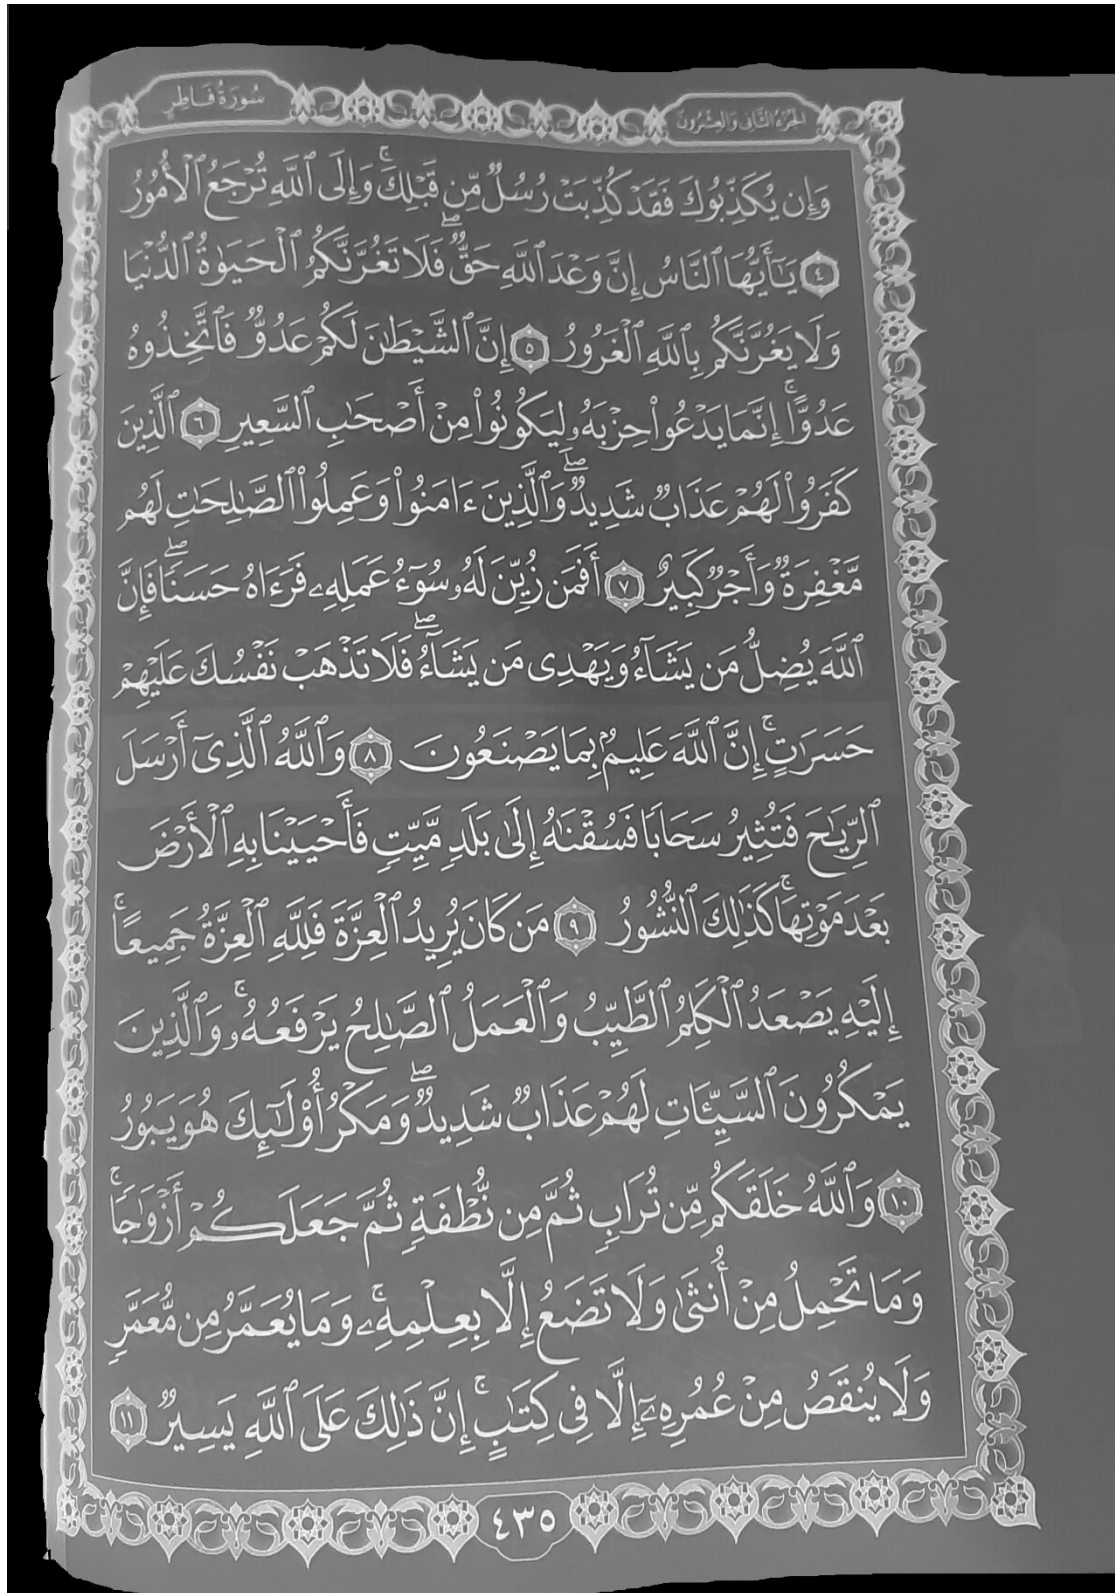 الجزء الثاني والعشرون
سُورَةُ فَاطِرٍ
وَإِن يُكَذِّبُوكَ فَقَدْ كُذِّبَتْ رُسُلٌ مِّن قَبْلِكَۚ وَإِلَى ٱللَّهِ تُرْجَعُ ٱلْأُمُورُ
٤ يَٰٓأَيُّهَا ٱلنَّاسُ إِنَّ وَعْدَ ٱللَّهِ حَقٌّۖ فَلَا تَغُرَّنَّكُمُ ٱلْحَيَوٰةُ ٱلدُّنْيَا
وَلَا يَغُرَّنَّكُم بِٱللَّهِ ٱلْغَرُورُ ٥ إِنَّ ٱلشَّيْطَٰنَ لَكُمْ عَدُوٌّ فَٱتَّخِذُوهُ
عَدُوًّاۚ إِنَّمَا يَدْعُوا۟ حِزْبَهُۥ لِيَكُونُوا۟ مِنْ أَصْحَٰبِ ٱلسَّعِيرِ ٦ ٱلَّذِينَ
كَفَرُوا۟ لَهُمْ عَذَابٌ شَدِيدٌۖ وَٱلَّذِينَ ءَامَنُوا۟ وَعَمِلُوا۟ ٱلصَّٰلِحَٰتِ لَهُم
مَّغْفِرَةٌ وَأَجْرٌ كَبِيرٌ ٧ أَفَمَن زُيِّنَ لَهُۥ سُوٓءُ عَمَلِهِۦ فَرَءَاهُ حَسَنًاۖ فَإِنَّ
ٱللَّهَ يُضِلُّ مَن يَشَآءُ وَيَهْدِى مَن يَشَآءُۖ فَلَا تَذْهَبْ نَفْسُكَ عَلَيْهِمْ
حَسَرَٰتٍۚ إِنَّ ٱللَّهَ عَلِيمٌۢ بِمَا يَصْنَعُونَ ٨ وَٱللَّهُ ٱلَّذِىٓ أَرْسَلَ
ٱلرِّيَٰحَ فَتُثِيرُ سَحَابًا فَسُقْنَٰهُ إِلَىٰ بَلَدٍ مَّيِّتٍ فَأَحْيَيْنَا بِهِ ٱلْأَرْضَ
بَعْدَ مَوْتِهَاۚ كَذَٰلِكَ ٱلنُّشُورُ ٩ مَن كَانَ يُرِيدُ ٱلْعِزَّةَ فَلِلَّهِ ٱلْعِزَّةُ جَمِيعًاۚ
إِلَيْهِ يَصْعَدُ ٱلْكَلِمُ ٱلطَّيِّبُ وَٱلْعَمَلُ ٱلصَّٰلِحُ يَرْفَعُهُۥۚ وَٱلَّذِينَ
يَمْكُرُونَ ٱلسَّيِّـَٔاتِ لَهُمْ عَذَابٌ شَدِيدٌۖ وَمَكْرُ أُو۟لَٰٓئِكَ هُوَ يَبُورُ
١٠ وَٱللَّهُ خَلَقَكُم مِّن تُرَابٍ ثُمَّ مِن نُّطْفَةٍ ثُمَّ جَعَلَكُمْ أَزْوَٰجًاۚ
وَمَا تَحْمِلُ مِنْ أُنثَىٰ وَلَا تَضَعُ إِلَّا بِعِلْمِهِۦۚ وَمَا يُعَمَّرُ مِن مُّعَمَّرٍ
وَلَا يُنقَصُ مِنْ عُمُرِهِۦٓ إِلَّا فِى كِتَٰبٍۚ إِنَّ ذَٰلِكَ عَلَى ٱللَّهِ يَسِيرٌ ١١
٤٣٥